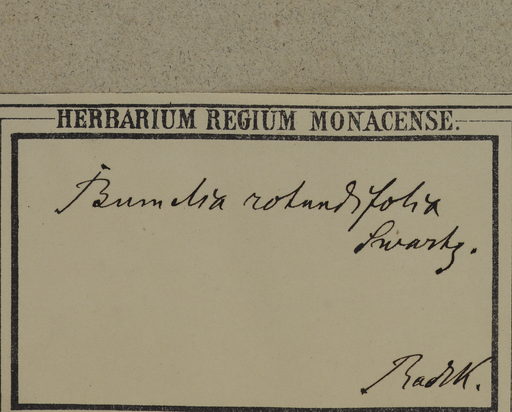 HERBARIUM REGIUM MONACENSE.
Bumelia rotundifolia
Swartz.
Radlk.